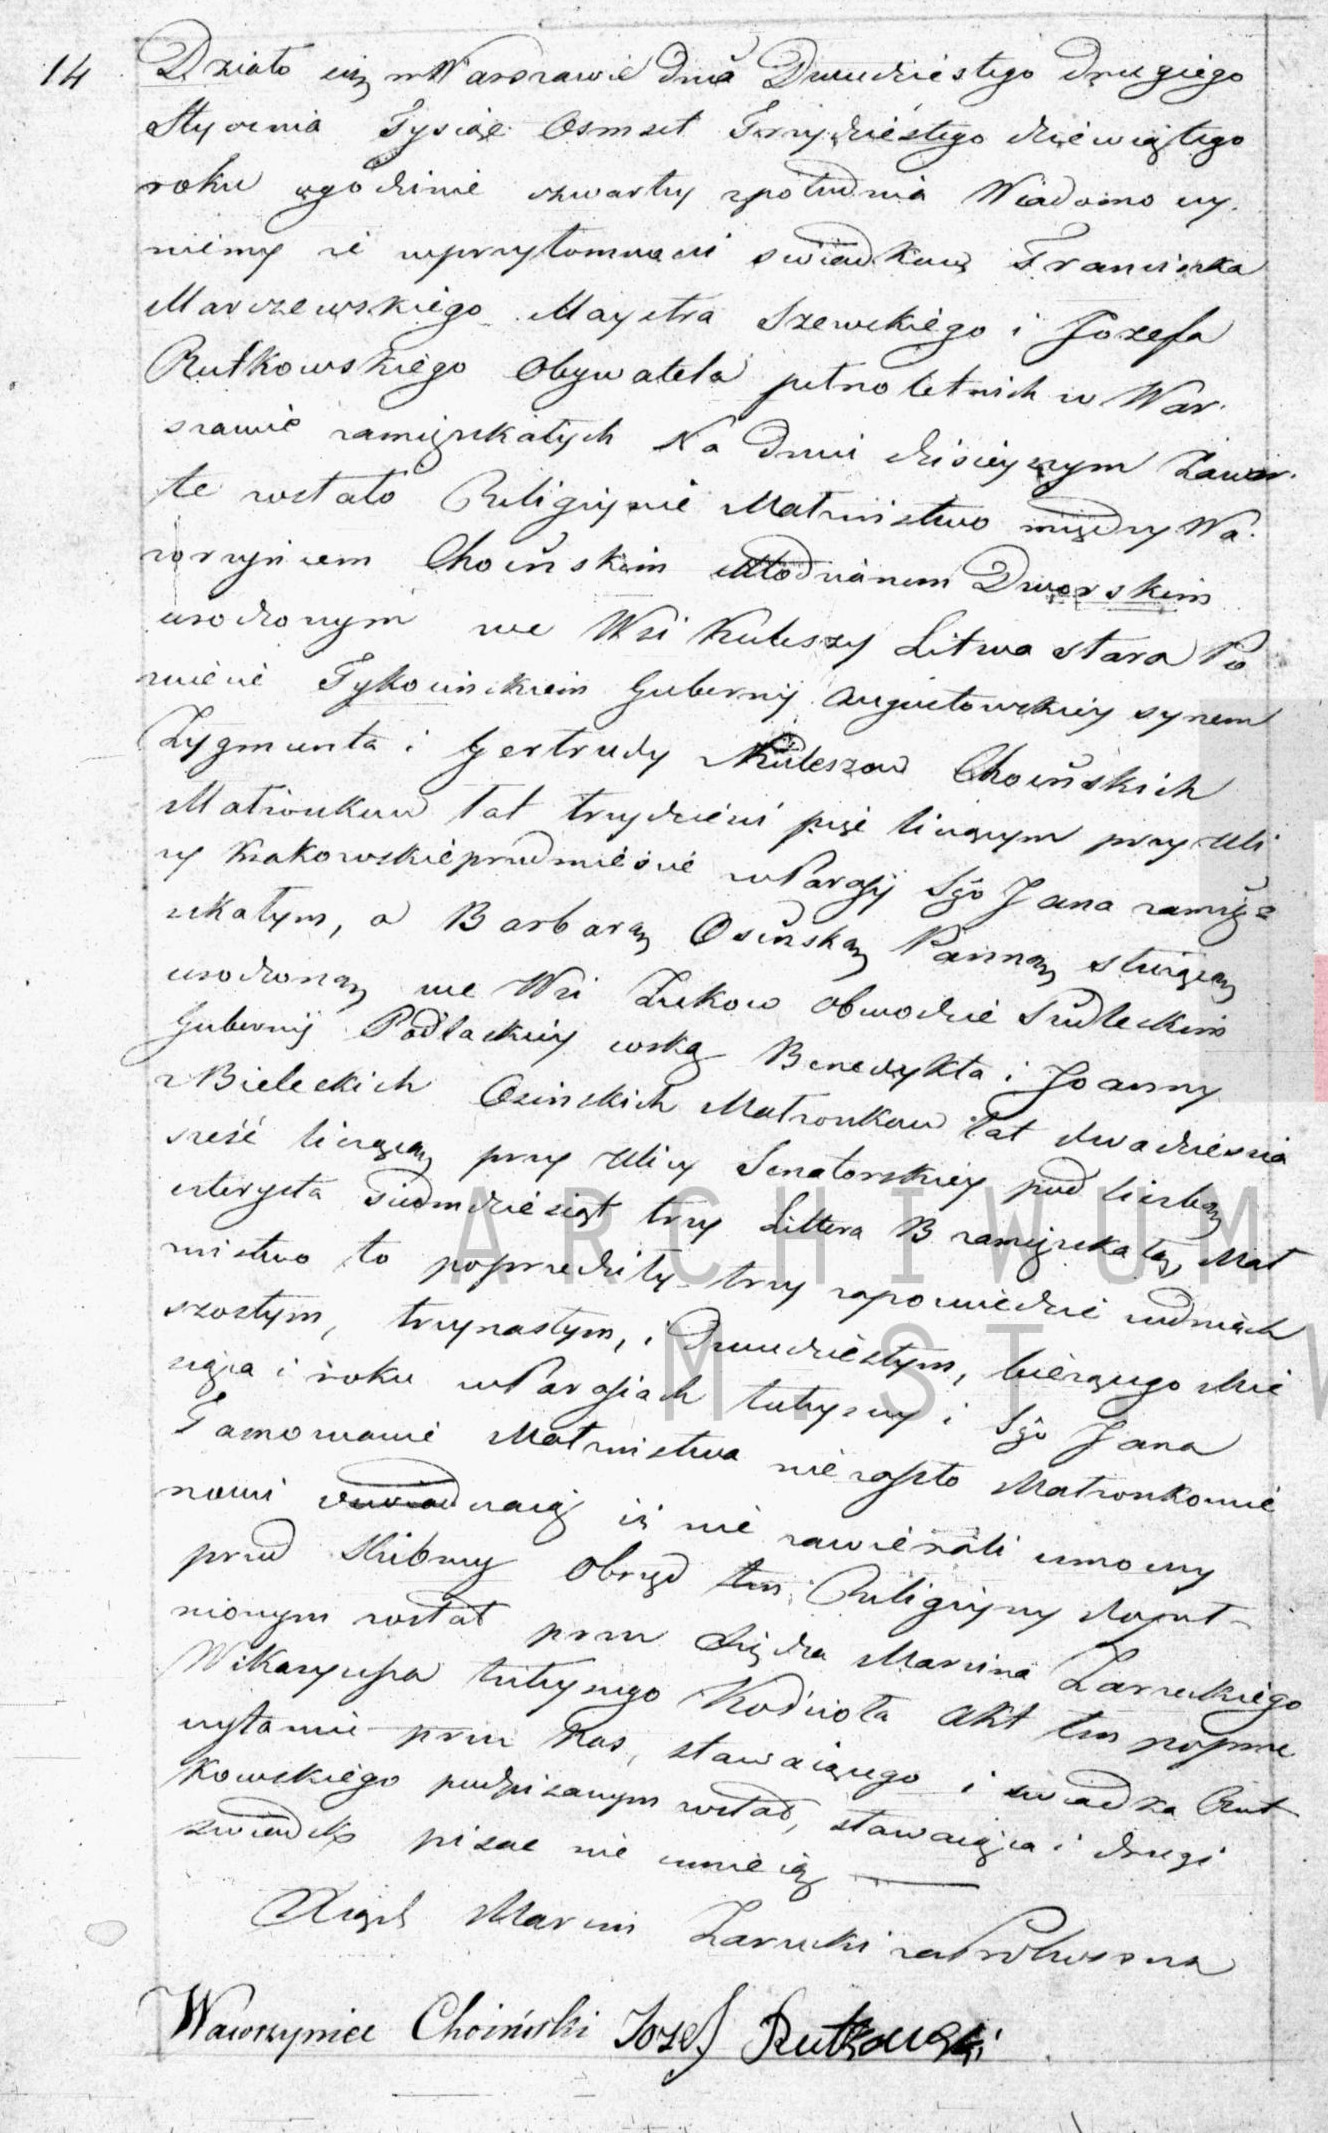 14
Działo się w Warszawie dnia Dwudziestego drugiego
Stycznia Tysiąc Osmset Trzydziestego dziewiątego
roku o godzinie czwarty z południa Wiadomo czy-
niemy że w przytomności świadków Franciszka
Marczewskiego Maystra Szewckiego i Jozefa
Rutkowskiego Obywatela pełnoletnich w War-
szawie zamięszkałych Na dniu dzisieyszym Zawar-
te zostało Religiynie Małżeństwo między Wa-
wrzyńcem Choińskim Młodzianem Dworskim
urodzonym we Wsi Kuleszy Litwa stara Po
wiecie Tykocinskiem Gubernij Augustowskiey synem
Zygmunta i Gertrudy z Kuleszow Choińskich
Małżonkow lat trzydzieści pięć liczącym przy Uli
cy Krakowskieprzedmieście w Parafij Sgo Jana zamię-
szkałym, a Barbarą Osińską Panną służącą
urodzoną we Wsi Łukow Obwodzie Siedleckim
Gubernij Podlaskiey corką Benedykta i Joanny
z Bieleckich Osinskich Małżonkow lat dwadzieścia
sześć liczącą przy Ulicy Senatorskiey pod liczbą
czterysta siedmdziesiąt trzy Littera B zamięszkałą, Mał
żeństwo to poprzedziły trzy zapowiedzie w dniach
szostym, trzynastym, i Dwudziestym, bieżącego Mie
siąca i roku w Parafiach tuteyszey i Sgo Jana
Tamowanie Małżeństwa nie zaszło Małżonkowie
nowi oswiadczaią iż nie zawierali umowy
przed slubney Obrzęd ten Religiyny dopeł-
nionym został przez Xiędza Marcina Zarzeckiego
Wikaryusza tuteyszego Kościoła Akt ten po prze
czytaniu przez Nas, stawaiącego i świadka Rut-
kowskiego podpisanym został, stawaiąca i drugi
świadek pisać nie umieią
Xiądz Marcin Zarzecki za Proboszcza
Wawrzyniec Choiński Jozef Rutkowski
ARCHIWUM
M. ST. W